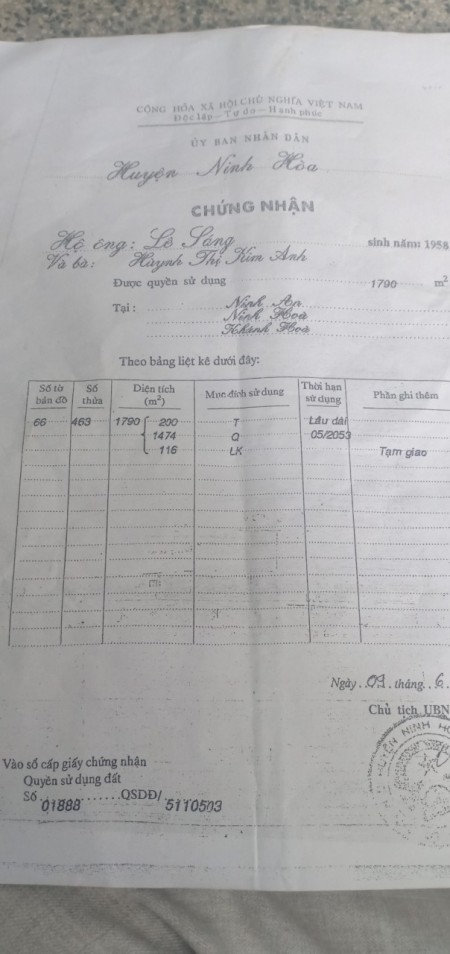 CỘNG HÒA XÃ HỘI CHỦ NGHĨA VIỆT NAM
Độc lập - Tự do - Hạnh phúc
ỦY BAN NHÂN DÂN
Huyện Ninh Hòa
CHỨNG NHẬN
Hộ ông: Lê Sáng sinh năm: 1958
Và bà: Huỳnh Thị Kim Ánh
Được quyền sử dụng 1790 m²
Tại: Ninh An
Ninh Hoà
Khánh Hoà
Theo bảng liệt kê dưới đây:
Số tờ bản đồ Số thửa Diện tích (m²) Mục đích sử dụng Thời hạn sử dụng Phần ghi thêm
66 463 1790 200 T Lâu dài
1474 Q 05/2053
116 LK Tạm giao
Ngày 09 tháng 6
Chủ tịch UBN
HUYỆN NINH HÒ
Vào sổ cấp giấy chứng nhận
Quyền sử dụng đất
Số 01888 QSDĐ/ 5110503